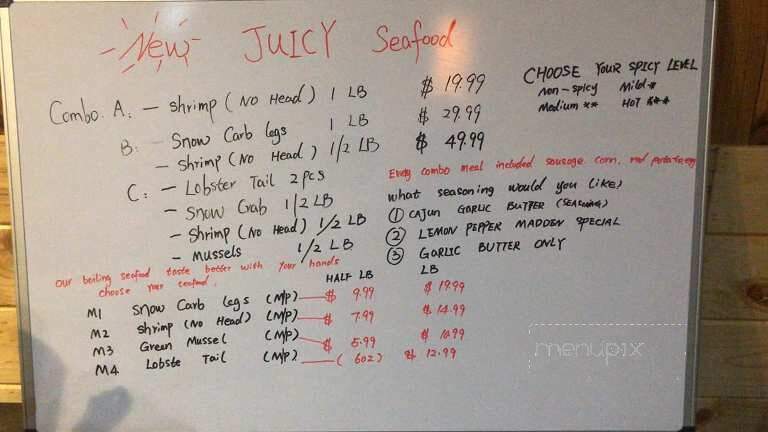 New JUICY Seafood
Combo: A: - shrimp (No Head) 1 LB $ 19.99
B: - Snow Carb legs 1 LB $ 29.99
- Shrimp (No Head) 1/2 LB $ 49.99
C: - Lobster Tail 2 pcs
- Snow Crab 1/2 LB
- Shrimp (No Head) 1/2 LB
- Mussels 1/2 LB
CHOOSE YOUR SPICY LEVEL
non-spicy Mild *
Medium ** HOT ***
Every combo meal included sausage, corn, red potato, egg
what seasoning would you like?
① CAJUN GARLIC BUTTER (SEASONING)
② LEMON PEPPER MADDEN SPECIAL
③ GARLIC BUTTER ONLY
Our boiling seafood taste better with your hands
choose your seafood.
HALF LB LB
M1 Snow Carb legs (M/P) $ 9.99 $ 19.99
M2 shrimp (No Head) (M/P) $ 7.99 $ 14.99
M3 Green Mussel (M/P) $ 5.99 $ 10.99
M4 Lobste Tail (M/P) (6oz) $ 12.99
menupix